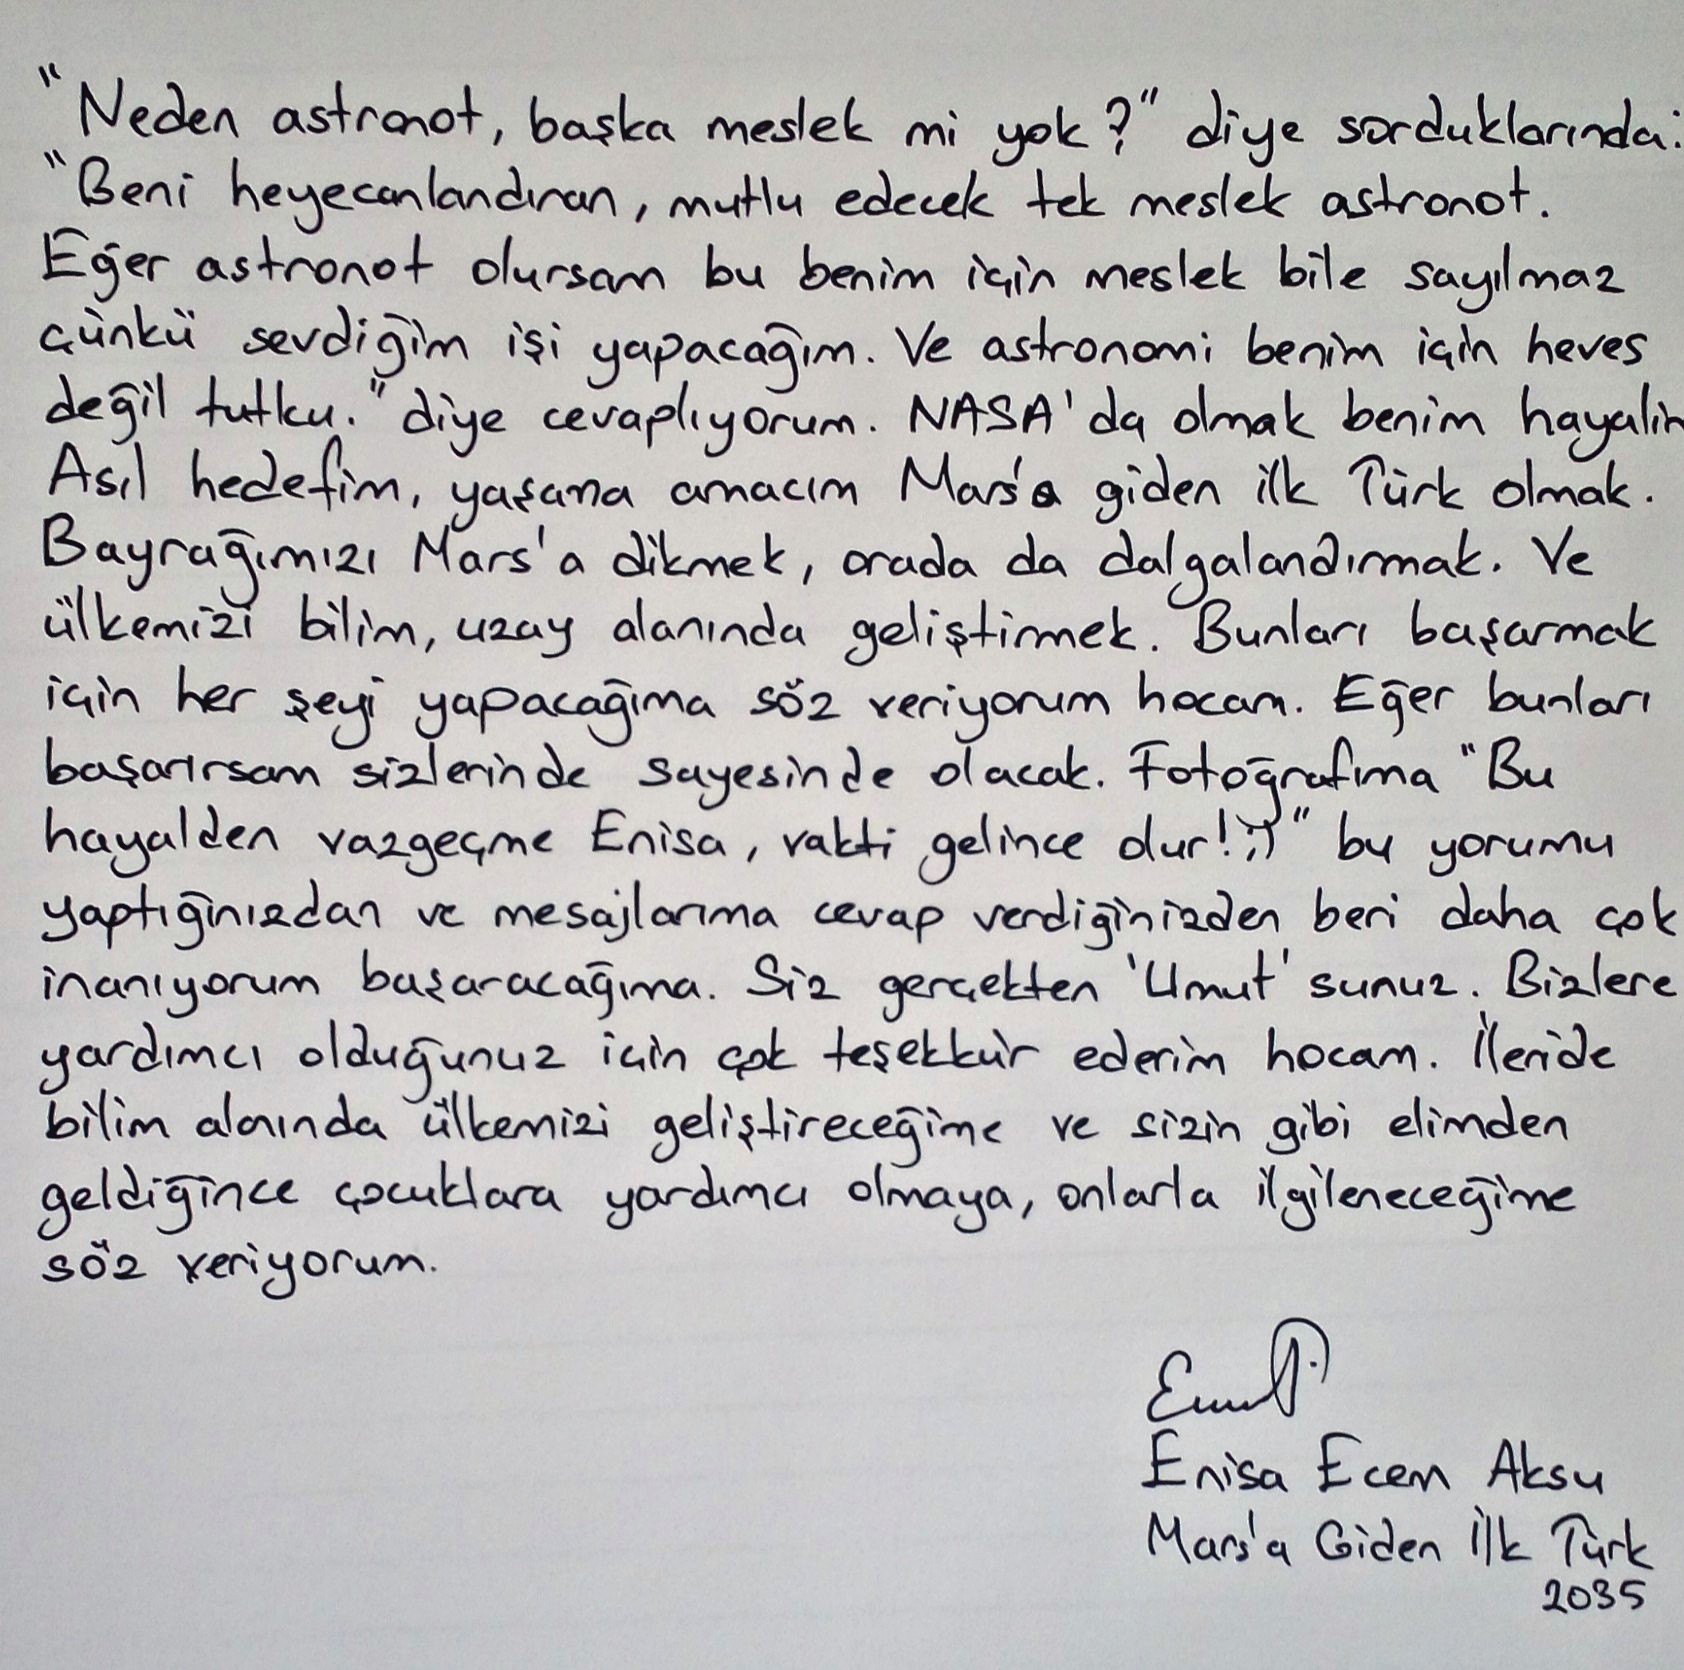 "Neden astronot, başka meslek mi yok?" diye sorduklarında:
"Beni heyecanlandıran, mutlu edecek tek meslek astronot.
Eğer astronot olursam bu benim için meslek bile sayılmaz
çünkü sevdiğim işi yapacağım. Ve astronomi benim için heves
değil tutku." diye cevaplıyorum. NASA'da olmak benim hayalim
Asıl hedefim, yaşama amacım Mars'a giden ilk Türk olmak.
Bayrağımızı Mars'a dikmek, orada da dalgalandırmak. Ve
ülkemizi bilim, uzay alanında geliştirmek. Bunları başarmak
için her şeyi yapacağıma söz veriyorum hocam. Eğer bunları
başarırsam sizlerinde sayesinde olacak. Fotoğrafıma "Bu
hayalden vazgeçme Enisa, vakti gelince dur! ;)" bu yorumu
yaptığınızdan ve mesajlarıma cevap verdiğinizden beri daha çok
inanıyorum başaracağıma. Siz gerçekten 'Umut' sunuz. Bizlere
yardımcı olduğunuz için çok teşekkür ederim hocam. İleride
bilim alanında ülkemizi geliştireceğime ve sizin gibi elimden
geldiğince çocuklara yardımcı olmaya, onlarla ilgileneceğime
söz veriyorum.
Enisa Ecem Aksu
Mars'a Giden İlk Türk
2035